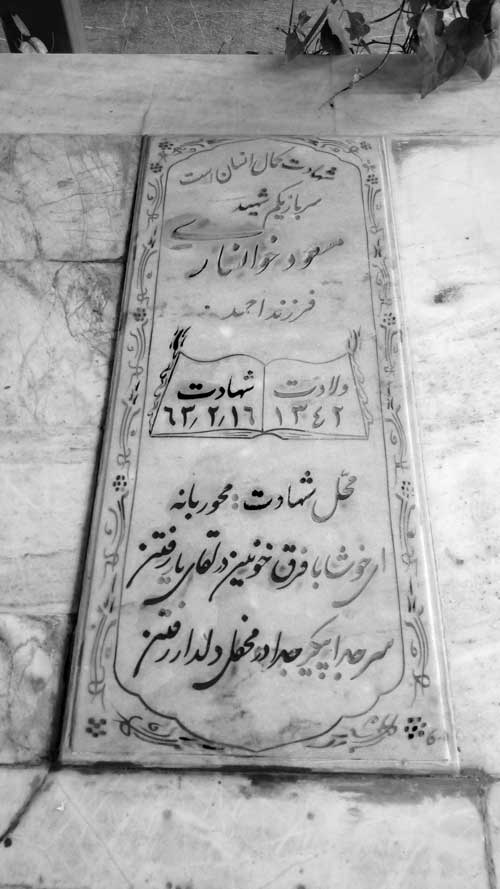 شهادت کمال انسان است
سرباز یکم شهید
مسعود خوانساری
فرزند احمد
ولادت شهادت
۱۳۴۲ ۶۳/۲/۱۶
محل شهادت: محور بانه
ای خوشا با فرق خونین در لقای یار رفتن
سر جدا پیکر جدا در محفل دلدار رفتن